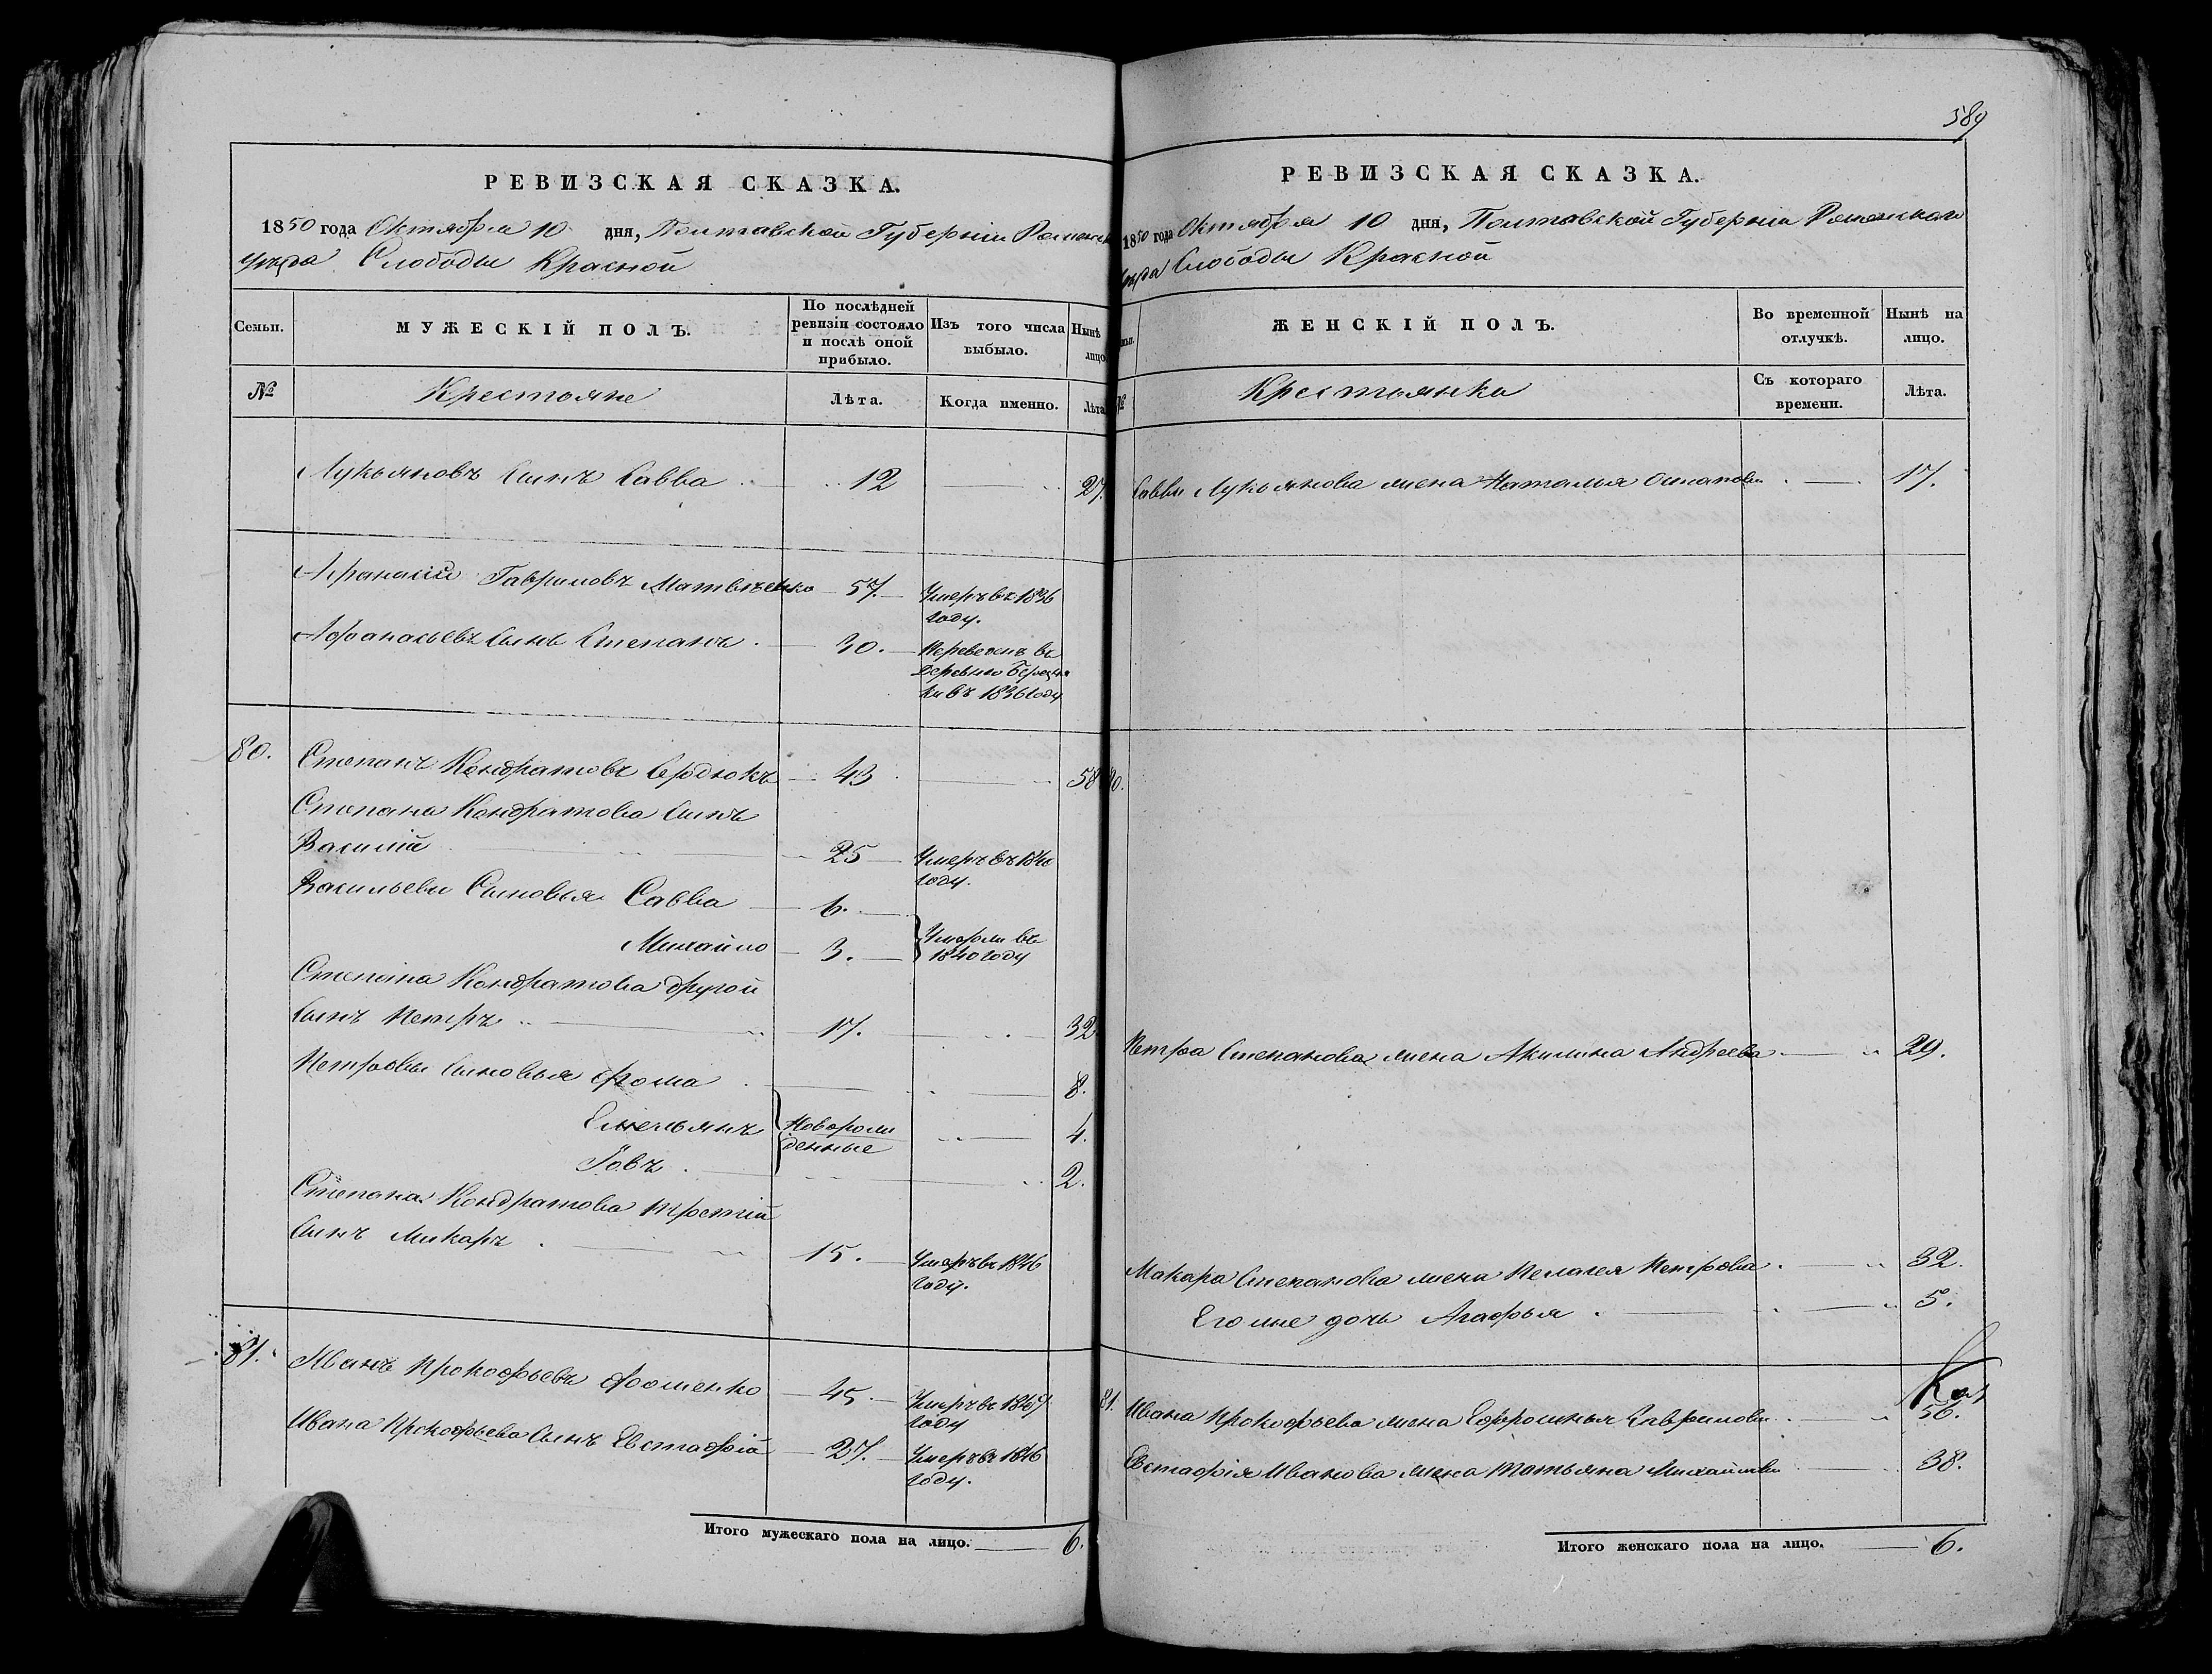 РЕВИЗСКАЯ СКАЗКА.
1850 года Октября 10 дня, Полтавской Губерніи Роменск
уѣзда Слободы Красной
Семьи.
МУЖЕСКІЙ ПОЛЪ.
По послѣдней
ревизіи состояло
и послѣ оной
прибыло.
Изъ того числа
выбыло.
Нынѣ
лицо
№
Крестьяне
Лѣта.
Когда именно.
Лѣта
Лукьяновъ Сынъ Савва 12 27.
Афанасій Гавриловъ Матвѣенко 57. Умеръ въ 1836
году.
Афанасьевъ Сынъ Степанъ 30. Переведенъ въ
деревню
въ 1836 году
80. Степанъ Кондратовъ Сердюкъ 43 58
Степана Кондратова Сынъ
Василій 25 Умеръ въ 1840
году.
Васильевы Сыновья Савва 6.
Михайло 3. Умерли въ
1840 году
Степана Кондратова другой
Сынъ Петръ 17. 32
Петровы Сыновья Фома 8.
Емельянъ Новорож
денные 4.
Іовъ 2.
Степана Кондратова третій
Сынъ Макаръ 15. Умеръ въ 1846
году.
81. Иванъ Прокофьевъ Фоменко 45. Умеръ въ 1849
году
Ивана Прокофьева Сынъ Евстафій 27. Умеръ въ 1846
году.
Итого мужескаго пола на лицо. 6.
589
РЕВИЗСКАЯ СКАЗКА.
1850 года Октября 10 дня, Полтавской Губерніи Роменскаго
уѣзда Слободы Красной
ЖЕНСКІЙ ПОЛЪ.
Во временной
отлучкѣ.
Нынѣ на
лицо.
№
Крестьянки
Съ котораго
времени.
Лѣта.
Саввы Лукьянова жена Наталья Остапова 17.
80.
Петра Степанова жена Акилина Андреева 29.
Макара Степанова жена Пелагея Петрова 32.
Его же дочь Агафья 5.
81. Ивана Прокофьева жена Ефросинья Гаврилова 56.
Евстафія Иванова жена Татьяна Михайлова 38.
Итого женскаго пола на лицо. 6.